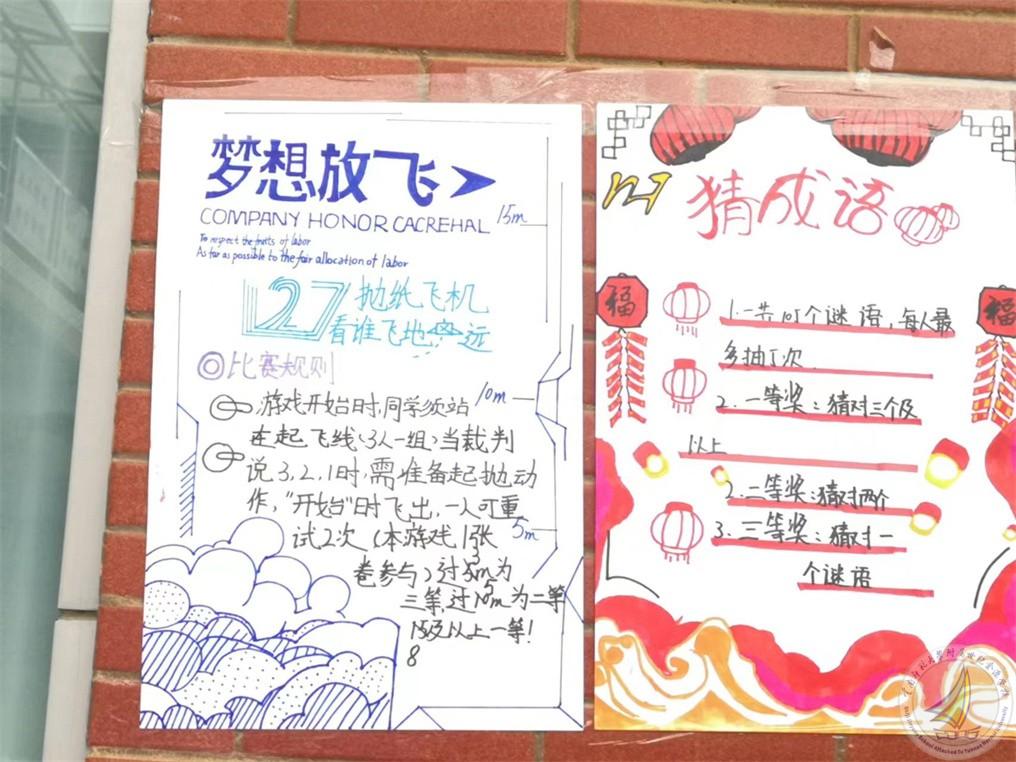 梦想放飞
COMPANY HONOR CACREHAL
To respect the fruits of labor
As far as possible to the fair allocation of labor
15m
27
抛纸飞机
看谁飞地 远
比赛规则
游戏开始时,同学须站
10m
在起飞线(3人一组)当裁判
说3,2,1时,需准备起抛动
作,"开始"时飞出,一人可重
5m
试2次(本游戏1张
卷参与)过 m为
三等,过 m为二等
及以上一等!
8
猜成语
福
福
1.一共 个谜语,每人最
多抽 次
2.一等奖:猜对三个及
以上
2.二等奖:猜对两个
3.三等奖:猜对一
个谜语